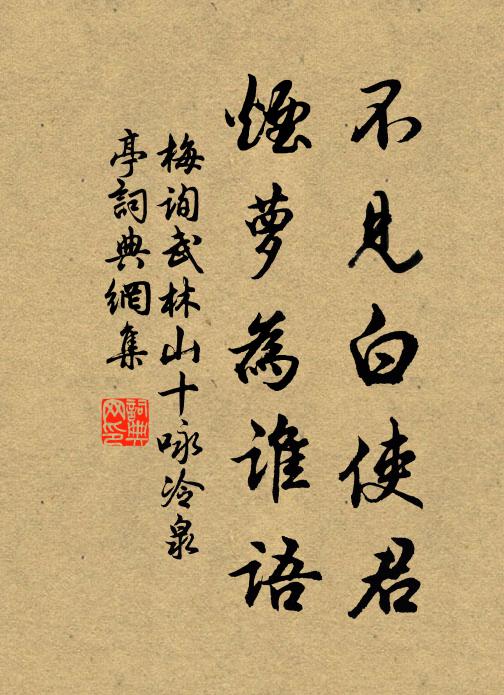 不見白使君
煙夢為誰語
梅询武林山十咏冷泉
亭詞典網集
詞典网印